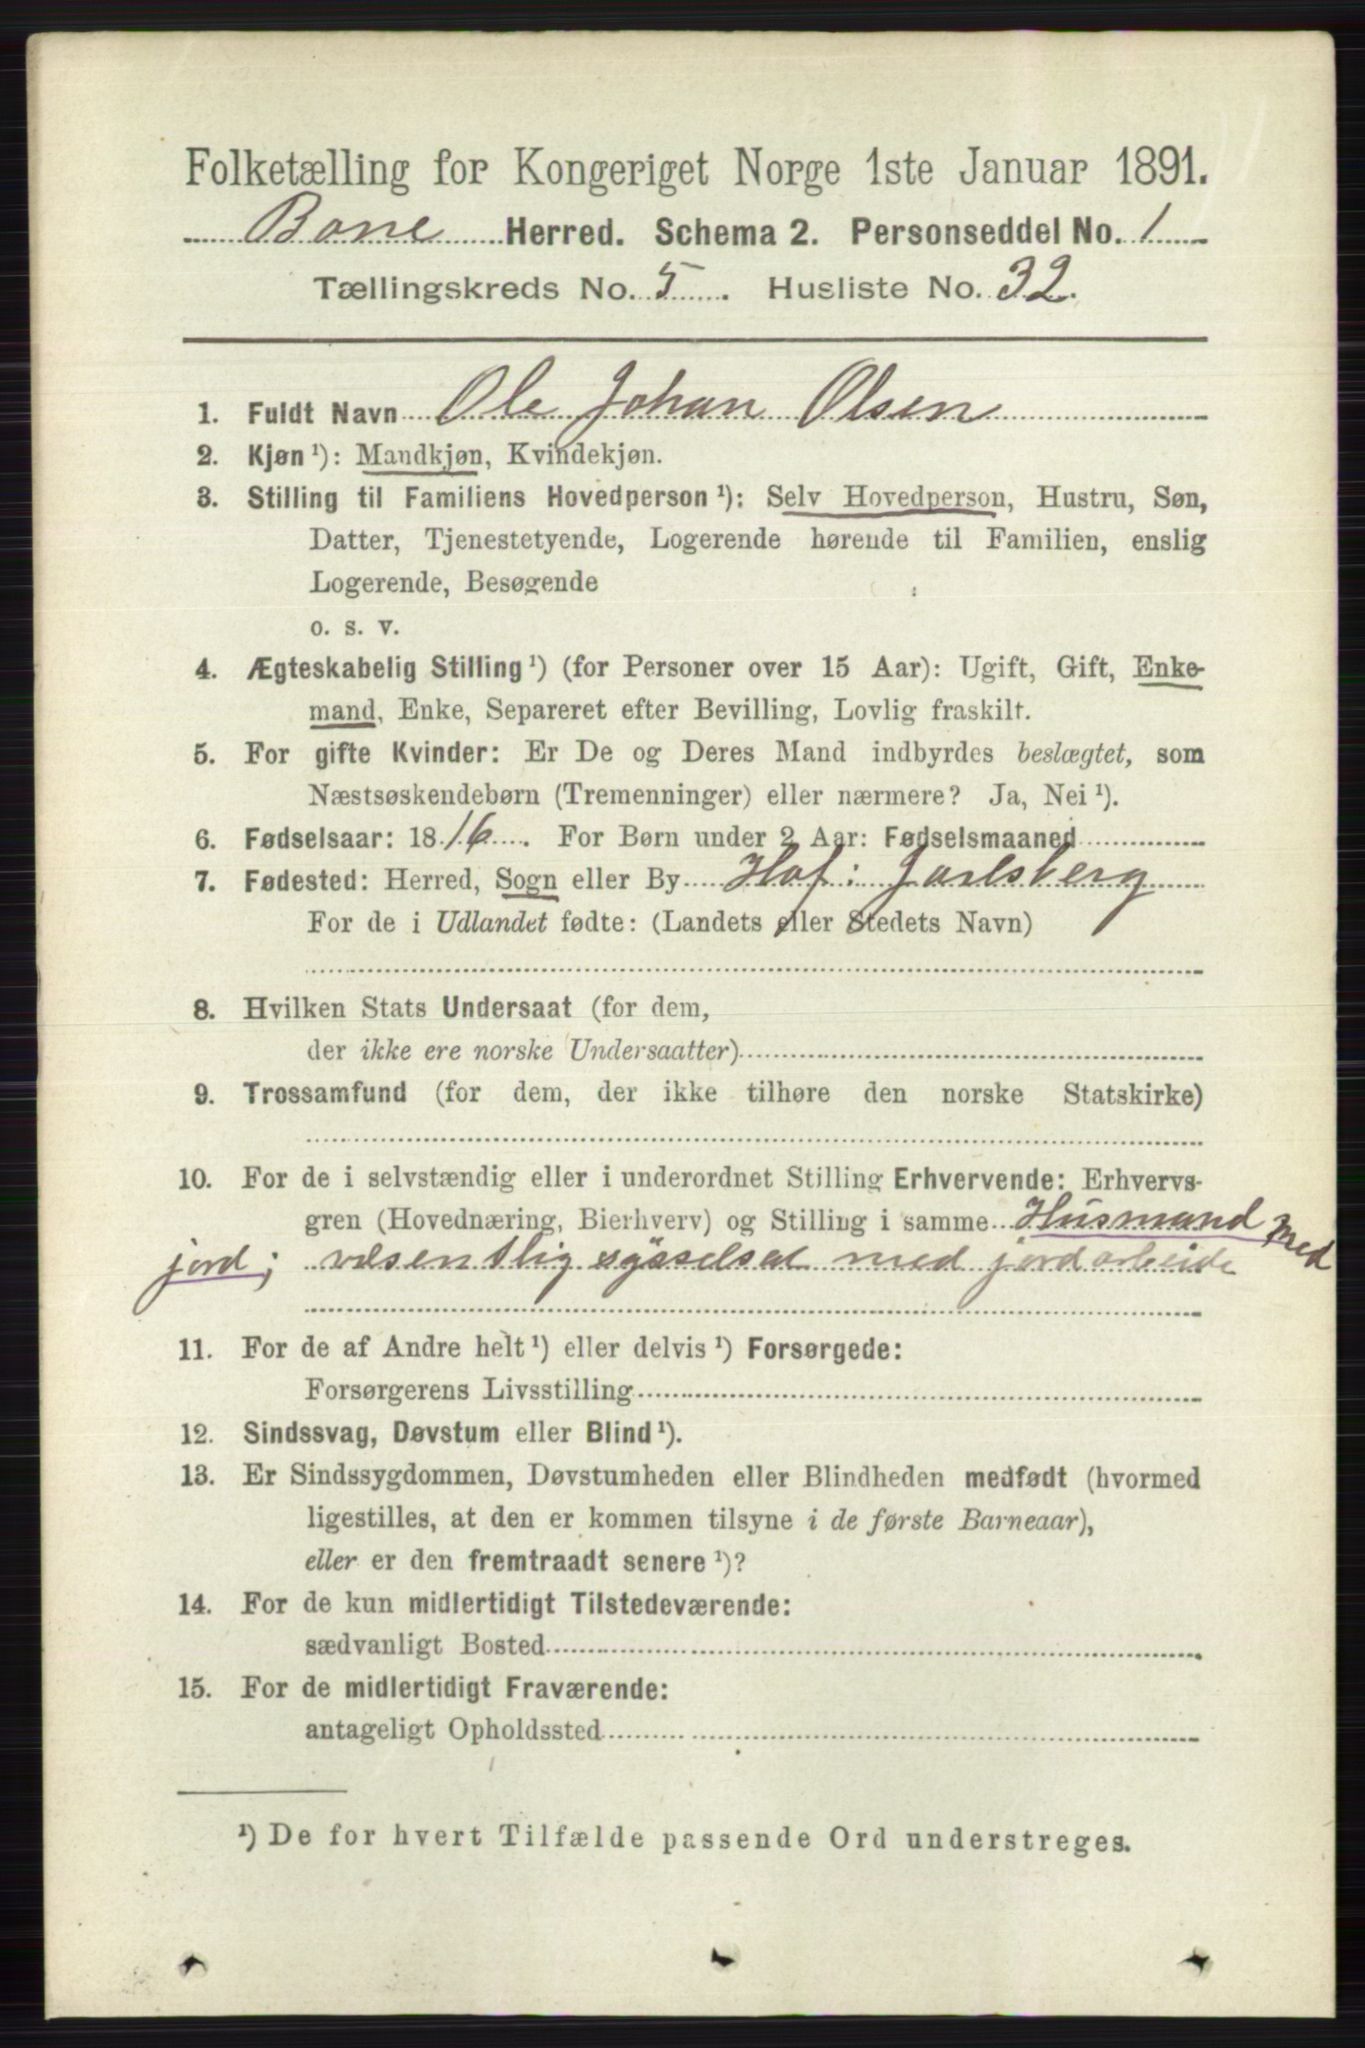 Folketælling for Kongeriget Norge 1ste Januar 1891.
Borre Herred. Schema 2. Personseddel No. 1
Tællingskreds No. 5. Husliste No. 32.
1. Fuldt Navn Ole Johan Olsen
2. Kjøn¹): Mandkjøn, Kvindekjøn.
3. Stilling til Familiens Hovedperson¹): Selv Hovedperson, Hustru, Søn,
Datter, Tjenestetyende, Logerende hørende til Familien, enslig
Logerende, Besøgende
o. s. v.
4. Ægteskabelig Stilling¹) (for Personer over 15 Aar): Ugift, Gift, Enke-
mand, Enke, Separeret efter Bevilling, Lovlig fraskilt.
5. For gifte Kvinder: Er De og Deres Mand indbyrdes beslægtet, som
Næstsøskendebørn (Tremenninger) eller nærmere? Ja, Nei¹).
6. Fødselsaar: 1816. For Børn under 2 Aar: Fødselsmaaned
7. Fødested: Herred, Sogn eller By Hof i Jarlsberg
For de i Udlandet fødte: (Landets eller Stedets Navn)
8. Hvilken Stats Undersaat (for dem,
der ikke ere norske Undersaatter)
9. Trossamfund (for dem, der ikke tilhøre den norske Statskirke)
10. For de i selvstændig eller i underordnet Stilling Erhvervende: Erhvervs-
gren (Hovednæring, Bierhverv) og Stilling i samme Husmand med
jord; væsentlig sysselsat med jordarbeide
11. For de af Andre helt¹) eller delvis¹) Forsørgede:
Forsørgerens Livsstilling
12. Sindssvag, Døvstum eller Blind¹).
13. Er Sindssygdommen, Døvstumheden eller Blindheden medfødt (hvormed
ligestilles, at den er kommen tilsyne i de første Barneaar),
eller er den fremtraadt senere¹)?
14. For de kun midlertidigt Tilstedeværende:
sædvanligt Bosted
15. For de midlertidigt Fraværende:
antageligt Opholdssted
¹) De for hvert Tilfælde passende Ord understreges.